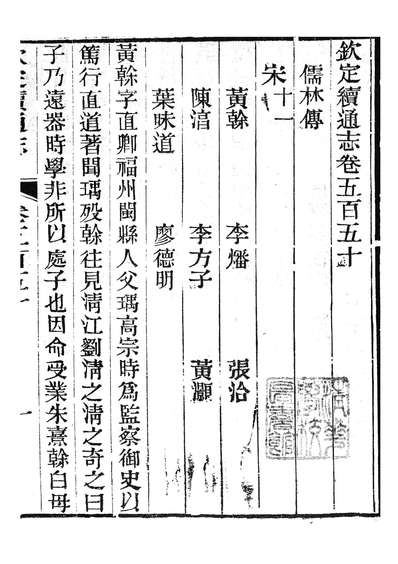 欽定續通志卷五百五十
儒林傳
宋十一
黃榦 李燔 張洽
陳淳 李方子 黃灝
葉味道 廖德明
黃榦字直卿福州閩縣人父瑀高宗時爲監察御史以
篤行直道著聞瑀歿榦往見清江劉清之清之奇之曰
子乃遠器時學非所以處子也因命受業朱熹榦白母
欽定續通志 卷五百五十 一